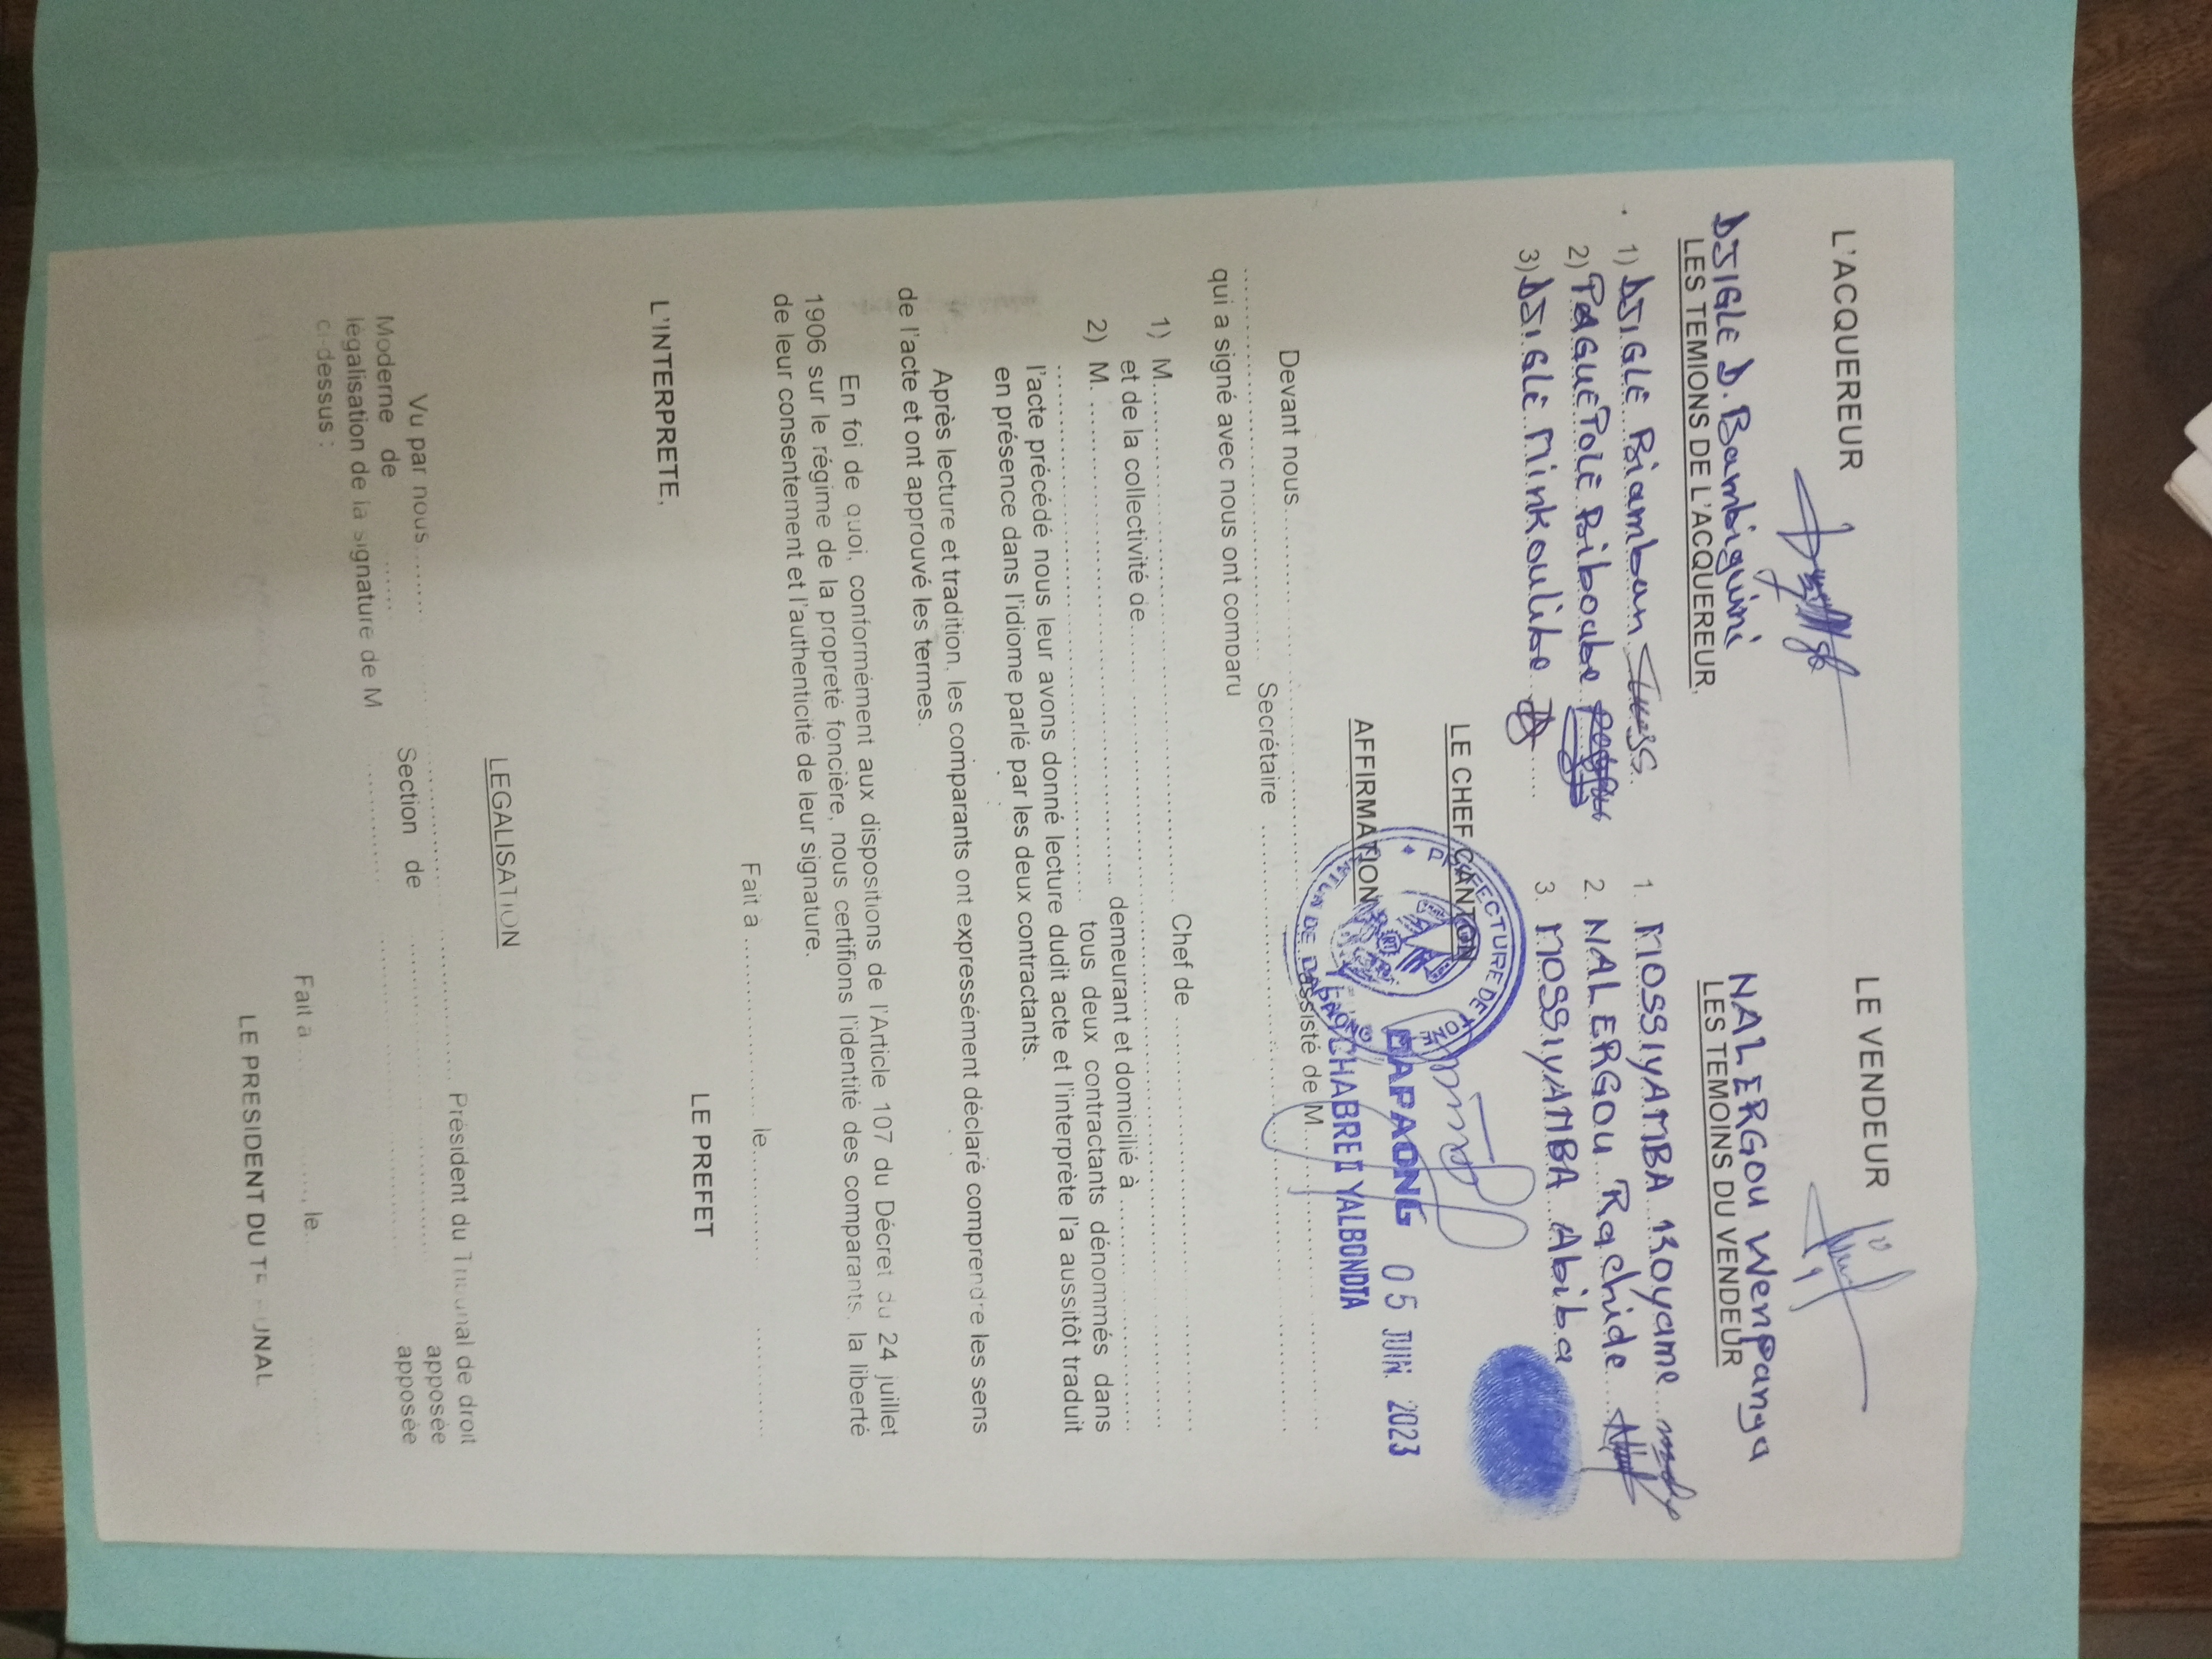 L'ACQUEREUR
LE VENDEUR
DJIGLE D. Bambiguini
NALERGOU Wenpanga
LES TEMIONS DE L'ACQUEREUR,
LES TEMOINS DU VENDEUR
1) DJIGLE Biamban
1. MOSSIYAMBA Boyame
2) PAGUETOLE Biboabe
2. NALERGOU Rachide
3) DJIGLE Minkoulibe
3. MOSSIYAMBA Abiba
LE CHEF CANTON
PREFECTURE DE
DAPAONG 05 JUIN 2023
AFFIRMATION
TCHABRE II YALBONDJA
Devant nous.......... assisté de M..........
.......... Secrétaire ..........
qui a signé avec nous ont comparu
1) M.......... Chef de ..........
et de la collectivité de .......... demeurant et domicilié à ..........
2) M. .......... tous deux contractants dénommés dans
l'acte précédé nous leur avons donné lecture dudit acte et l'interprète l'a aussitôt traduit
en présence dans l'idiome parlé par les deux contractants.
Après lecture et tradition, les comparants ont expressément déclaré comprendre les sens
de l'acte et ont approuvé les termes.
En foi de quoi, conformément aux dispositions de l'Article 107 du Décret du 24 juillet
1906 sur le régime de la propreté foncière, nous certifions l'identité des comparants, la liberté
de leur consentement et l'authenticité de leur signature.
Fait à .......... le..........
L'INTERPRETE,
LE PREFET
LEGALISATION
Vu par nous .......... Président du Tribunal de droit
Moderne de .......... Section de .......... apposée
légalisation de la signature de M .......... apposée
ci-dessus :
Fait à .........., le..
LE PRESIDENT DU TRIBUNAL